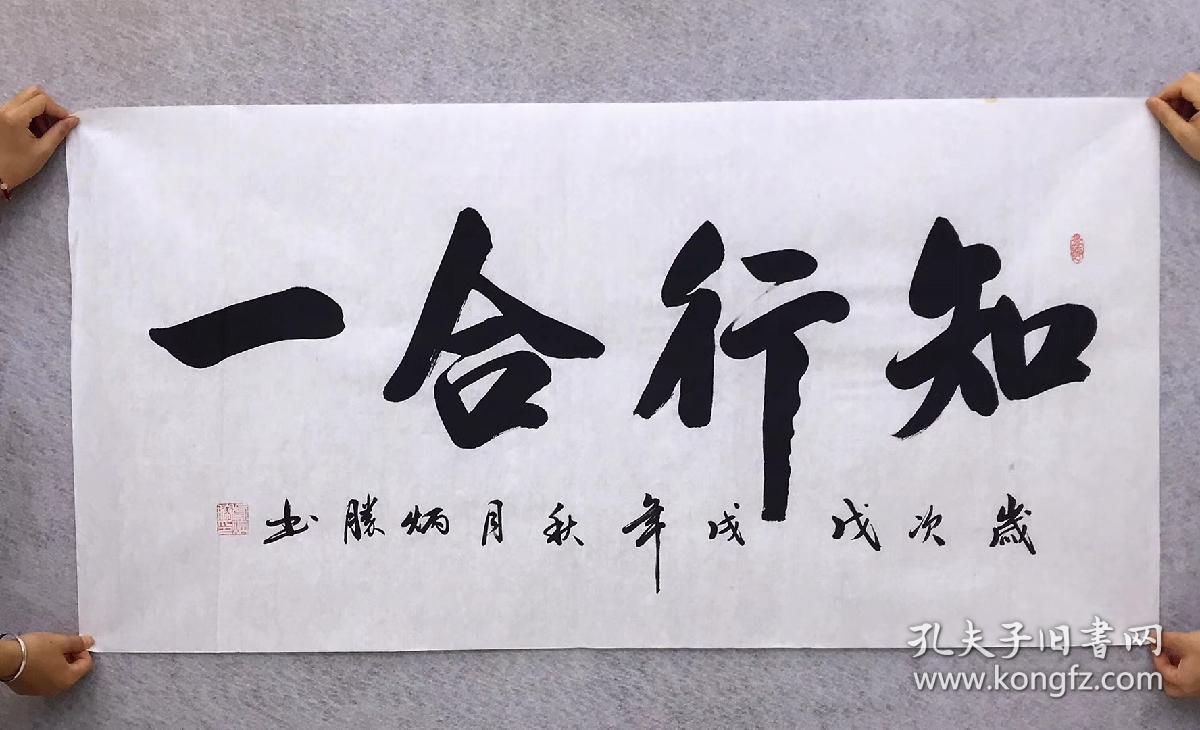 知行合一
歲次戊戌年秋月炳勝书
孔夫子旧書网
www.kongfz.com